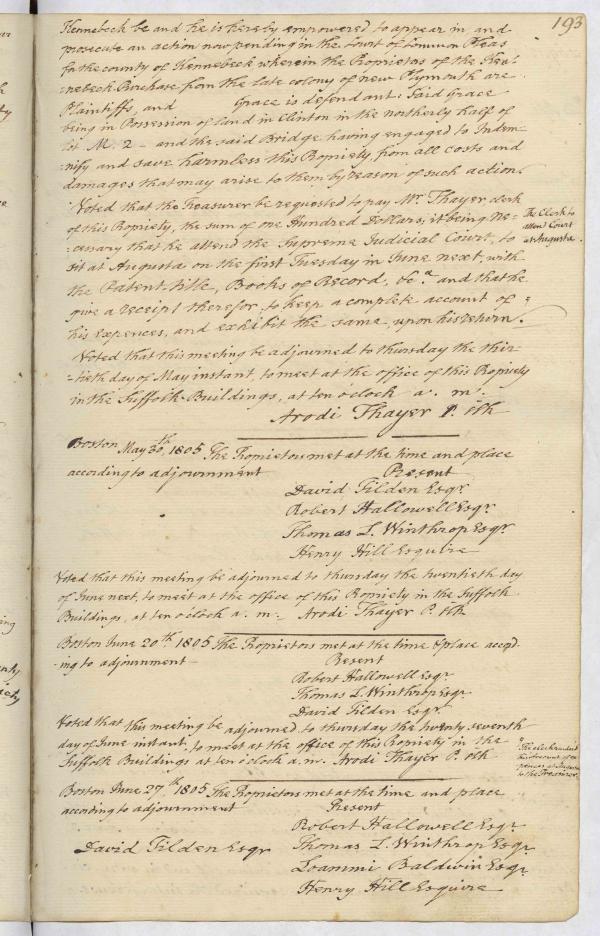 193
Kennebeck be and he is hereby empowered to appear in and
prosecute an action now pending in the Court of Common Pleas
for the county of Kennebeck wherein the Proprietors of the Ken-
-nebeck Purchase from the late colony of new Plymouth are
Plaintiffs, and Grace is defendant: Said Grace
being in Possession of land in Clinton in the northerly half of
lot M. 2 - and the said Bridge having engaged to Indem-
-nify and save harmless this Propriety from all Costs and
damages that may arise to them by reason of such action.
Voted that the Treasurer be requested to pay Mr. Thayer clerk
of this Propriety, the sum of one Hundred Dollars, it being ne-
-cessary that he attend the Supreme Judicial Court, to
The Clerk to
attend Court
at Augusta.
sit at Augusta on the first Tuesday in June next, with
the Patent, title, Books of Record, &c.a and that he
give a receipt therefor, to keep a complete account of
his expences, and exhibit the same, upon his return.
Voted that this meeting be adjourned to thursday the thir-
-tieth day of May instant, to meet at the office of this Propriety
in the Suffolk-Buildings, at ten o'clock a. m.
Arodi Thayer P. Clk
Boston May 30,th 1805 The Proprietors met at the time and place
according to adjournment
Present
David Tilden Esqr.
Robert Hallowell Esqr.
Thomas L. Winthrop Esqr.
Henry Hill Esquire
Voted that this meeting be adjourned to thursday the twentieth day
of June next, to meet at the office of this Propriety in the Suffolk
Buildings, at ten o'clock a. m. Arodi Thayer P. Clk
Boston June 20.th 1805 The Proprietors met at the time & place accord-
-ing to adjournment
Present
Robert Hallowell Esqr.
Thomas L. Winthrop Esqr.
David Tilden Esqr.
Voted that this meeting be adjourned to thursday the twenty seventh
day of June instant, to meet at the office of this Propriety in the
Suffolk Buildings at ten o'clock a. m. Arodi Thayer P. Clk
The clerk
his account of ex
pences at Augusta
to the Treasurer.
Boston June 27.th 1805 The Proprietors met at the time and place
according to adjournment
Present
Robert Hallowell Esqr.
David Tilden Esqr Thomas L. Winthrop Esqr.
Loammi Baldwin Esqr.
Henry Hill Esquire